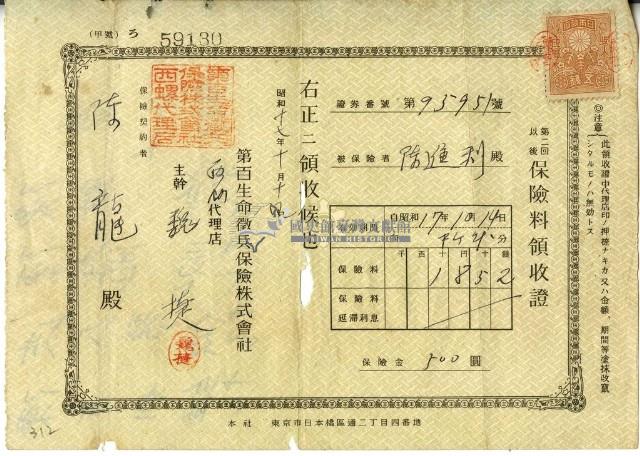 (甲號) ろ 59130
◎注意 此領收證中代理店印ノ押捺ナキカ又ハ金額、期間等塗抹改竄シタルモノハ無効トス
第二回以後 保險料領收證
證券番號 第95951號
被保險者 陳進利 殿
自昭和17年10月14日
千百十円十錢
保險料 1852
保險料延滯利息
保險金 500圓
右正ニ領收候也
昭和十七年十月十四日
第百生命徵兵保險株式會社
西螺代理店
主幹 魏捷
魏捷
第百生命徵兵保險株式會社西螺代理店
保險契約者
陳龍 殿
本社 東京市日本橋區通二丁目四番地
312
國史館臺灣文獻館
TAIWAN HISTORICA